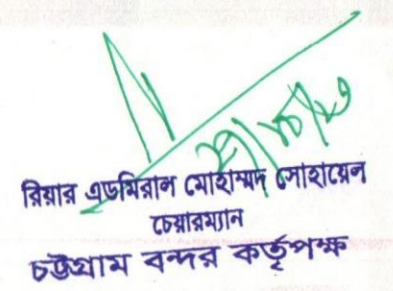 রিয়ার এডমিরাল মোহাম্মদ সোহায়েল
চেয়ারম্যান
চট্টগ্রাম বন্দর কর্তৃপক্ষ